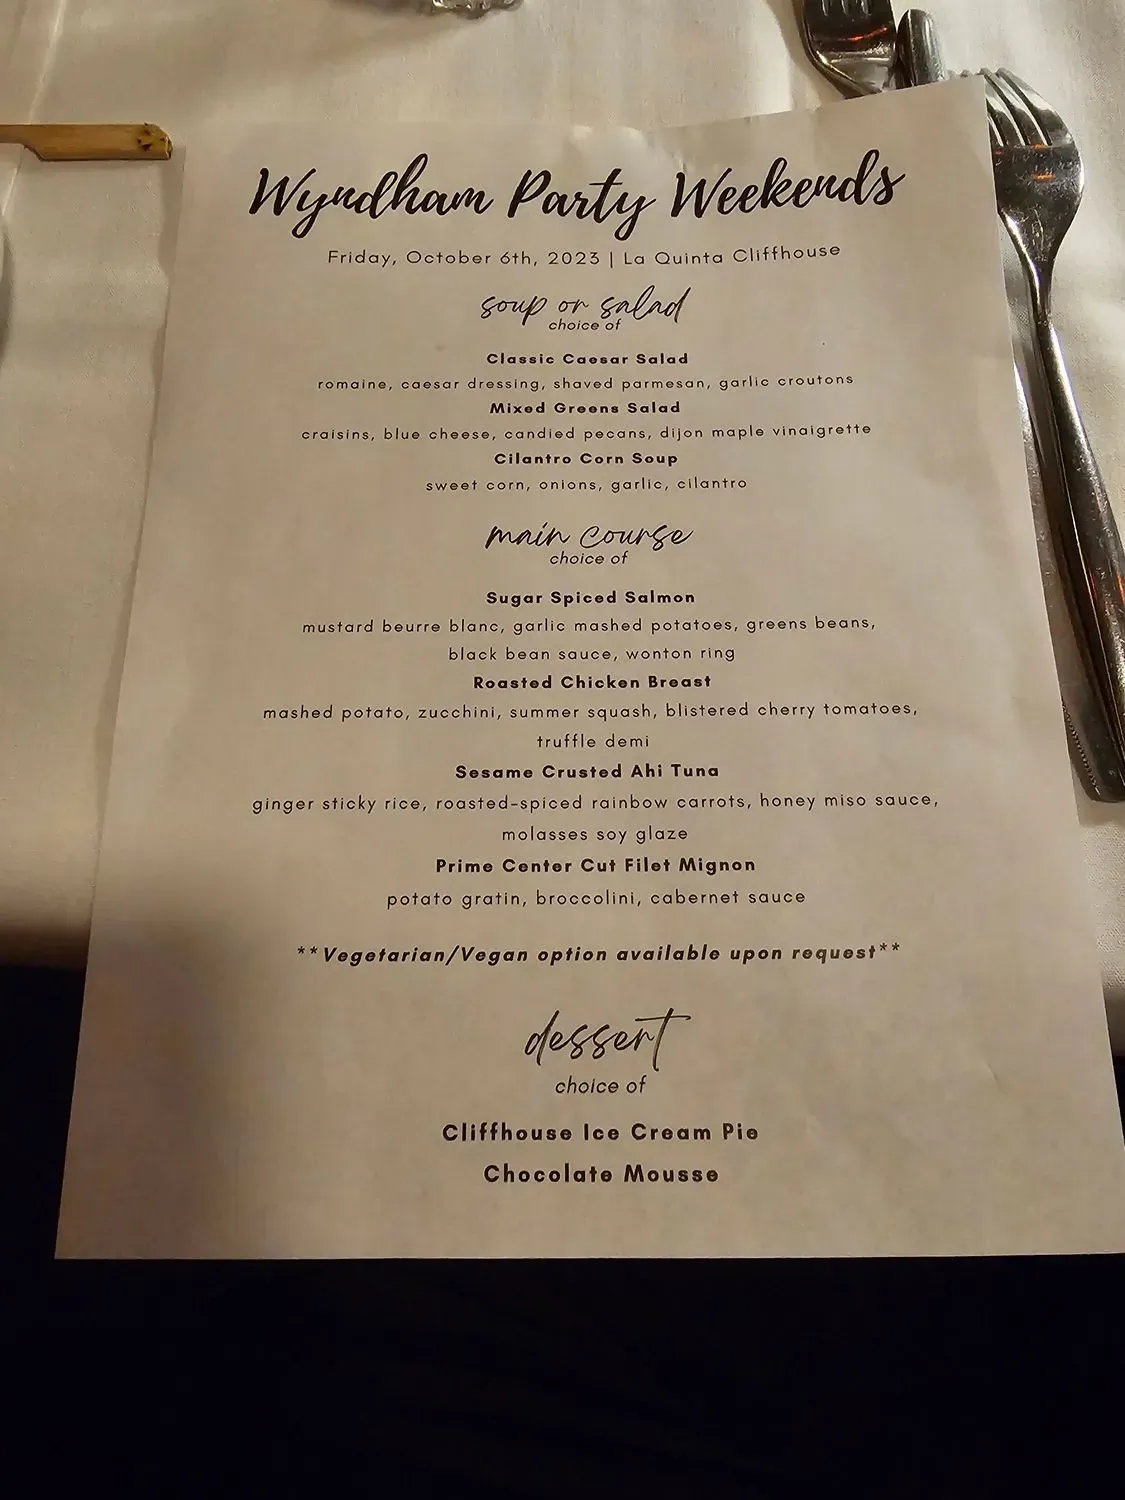 Wyndham Party Weekends
Friday, October 6th, 2023 | La Quinta Cliffhouse
soup or salad
choice of
Classic Caesar Salad
romaine, caesar dressing, shaved parmesan, garlic croutons
Mixed Greens Salad
craisins, blue cheese, candied pecans, dijon maple vinaigrette
Cilantro Corn Soup
sweet corn, onions, garlic, cilantro
main course
choice of
Sugar Spiced Salmon
mustard beurre blanc, garlic mashed potatoes, greens beans,
black bean sauce, wonton ring
Roasted Chicken Breast
mashed potato, zucchini, summer squash, blistered cherry tomatoes,
truffle demi
Sesame Crusted Ahi Tuna
ginger sticky rice, roasted-spiced rainbow carrots, honey miso sauce,
molasses soy glaze
Prime Center Cut Filet Mignon
potato gratin, broccolini, cabernet sauce
**Vegetarian/Vegan option available upon request**
dessert
choice of
Cliffhouse Ice Cream Pie
Chocolate Mousse